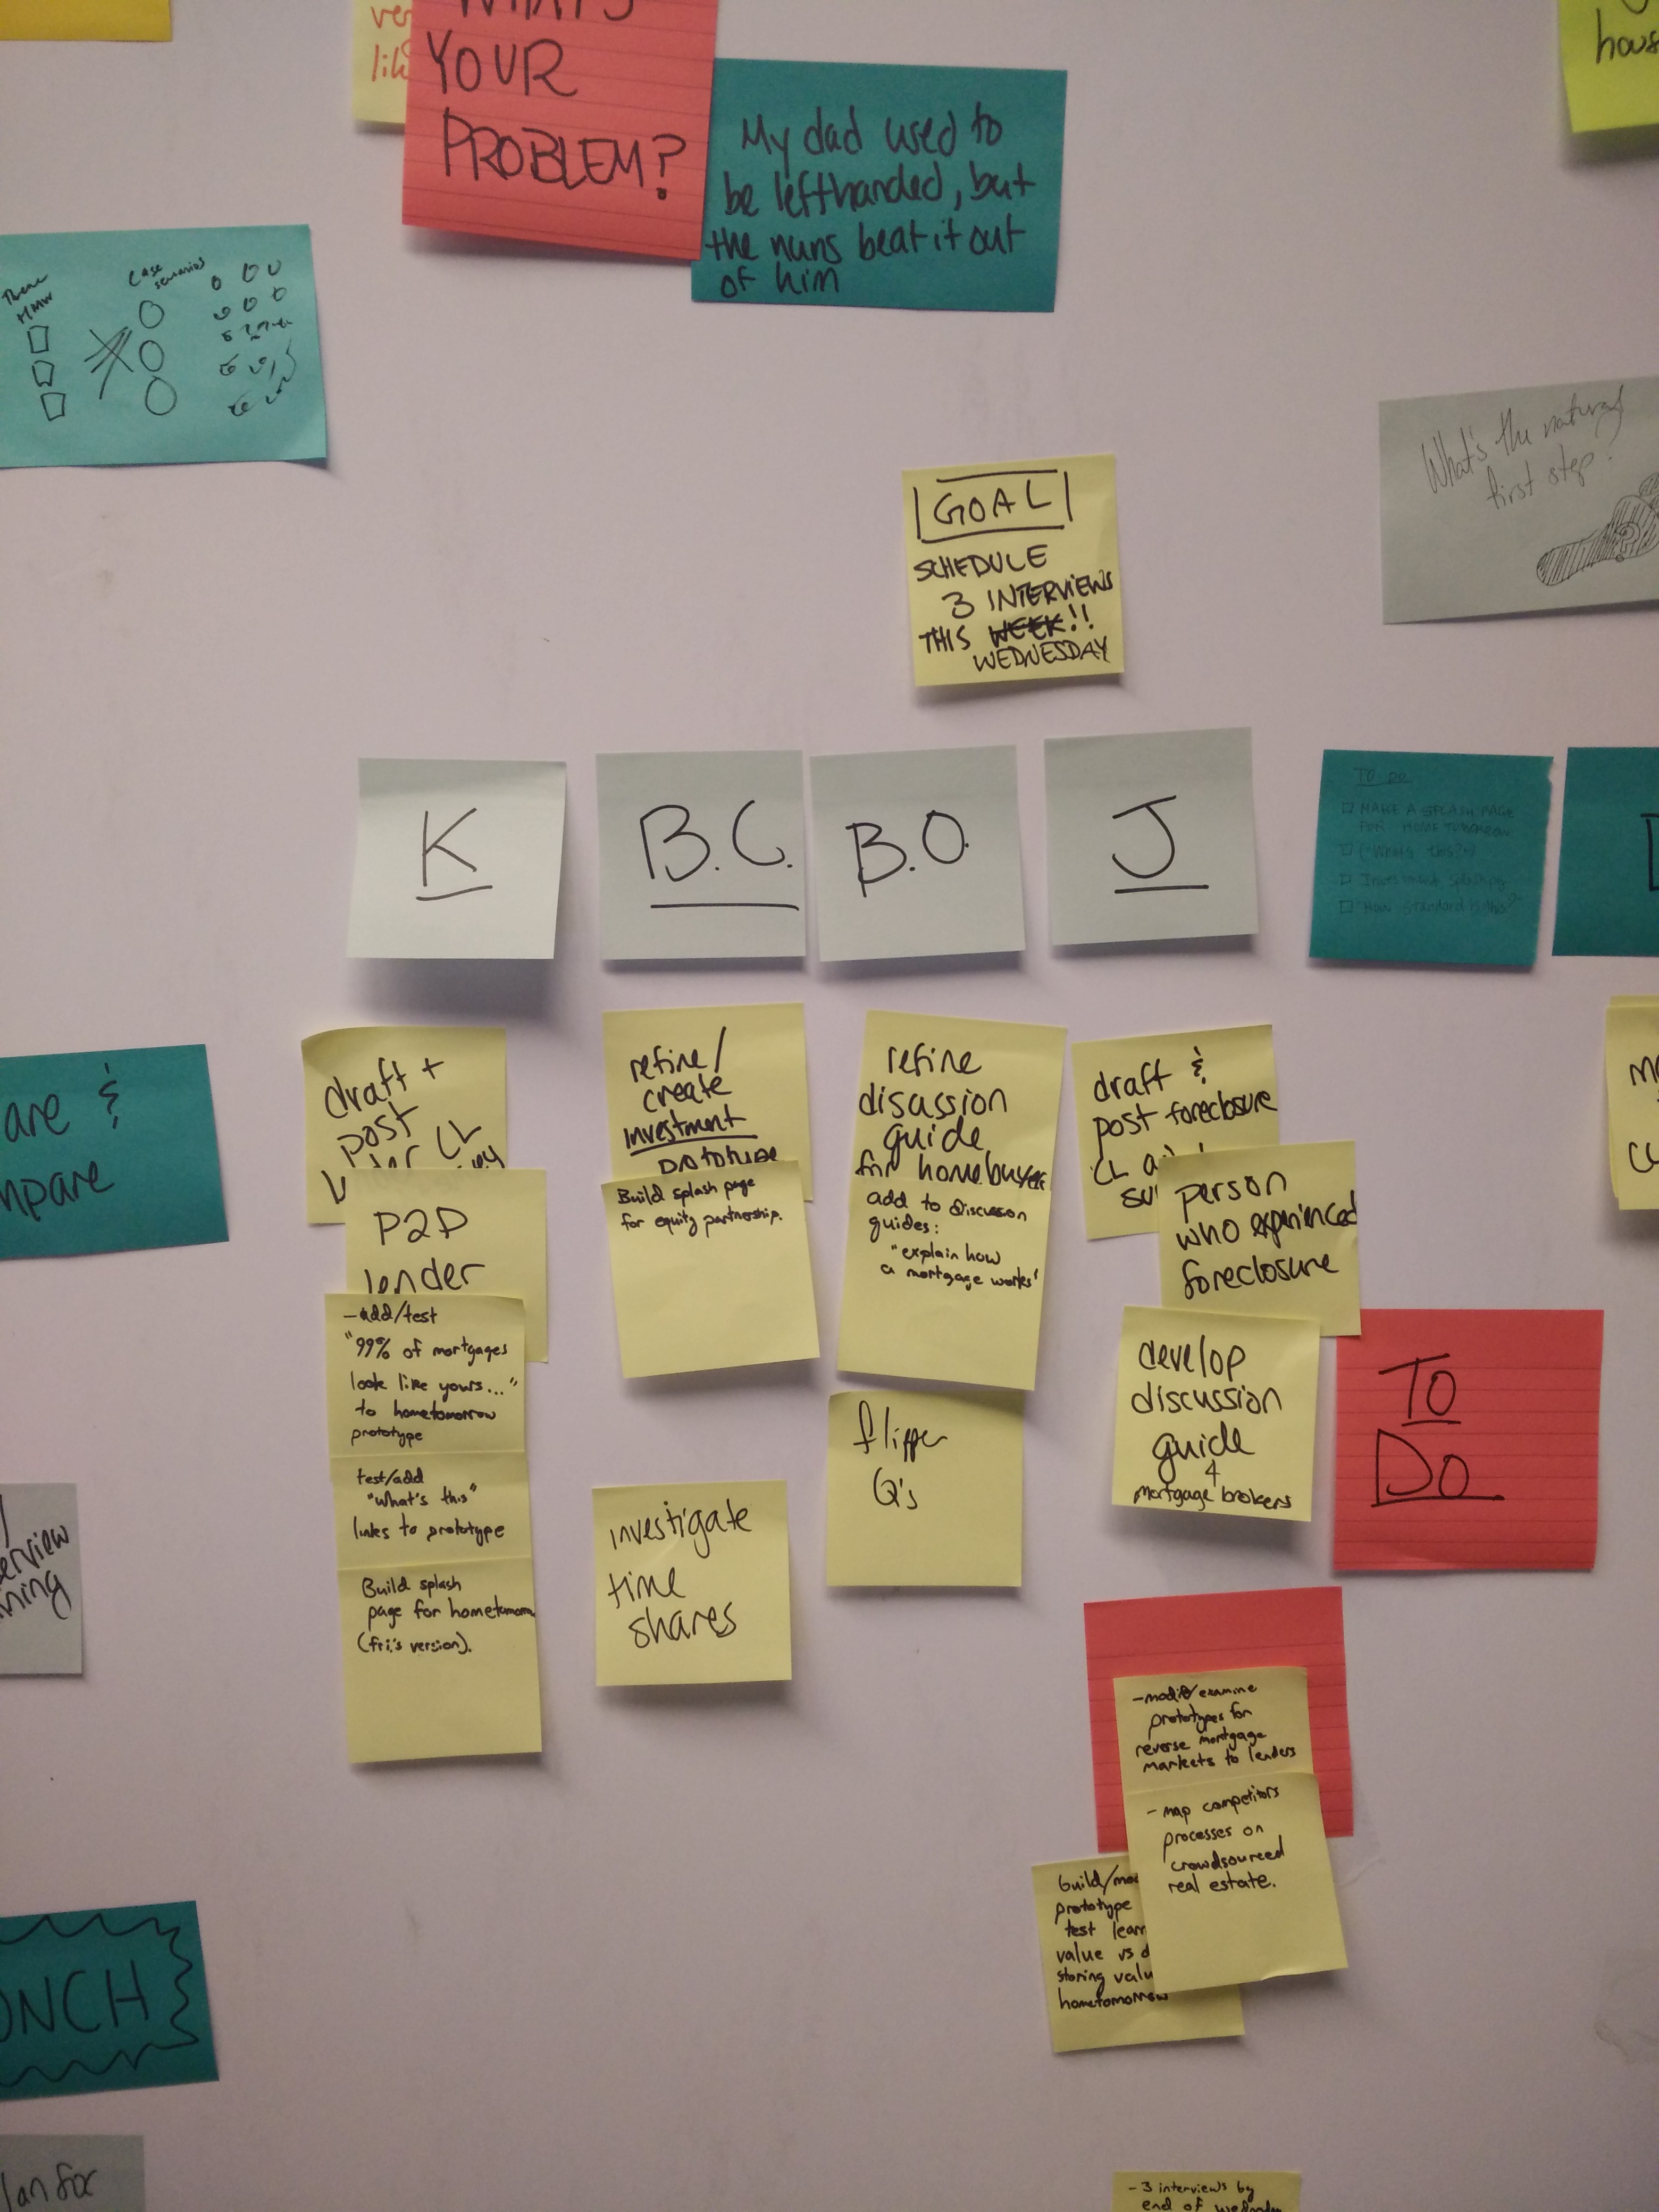 WHAT'S
YOUR
PROBLEM?
My dad used to
be lefthanded, but
the nuns beat it out
of him
hous
Theme
HMW
Case
scenarios
What's the natural
first step?
?
GOAL
SCHEDULE
3 INTERVIEWS
THIS WEEK!!
WEDNESDAY
K
B.C.
B.O.
J
TO DO
MAKE A SPLASH PAGE
FOR HOME TOMORROW
("What's this?")
Investment splash pg
are &
mpare
draft +
post
CL
P2P
lender
-add/test
"99% of mortgages
look like yours..."
to hometomorrow
prototype
test/add
"what's this"
links to prototype
Build splash
page for hometomorrow
(fri.'s version).
refine/
create
investment
prototype
Build splash page
for equity partnership.
investigate
time
shares
refine
discussion
guide
for homebuyer
add to discussion
guides:
"explain how
a mortgage works"
flipper
Q's
draft &
post foreclosure
CL
person
who experienced
foreclosure
develop
discussion
guide
4
mortgage brokers
TO
DO
-modify/examine
prototypes for
reverse mortgage
markets to lenders
-map competitors
processes on
crowdsourced
real estate.
build/mod
prototype
test learn
value vs d
storing valu
hometomorrow
erview
ning
ONCH
lan for
-3 interviews by
end of wednesday